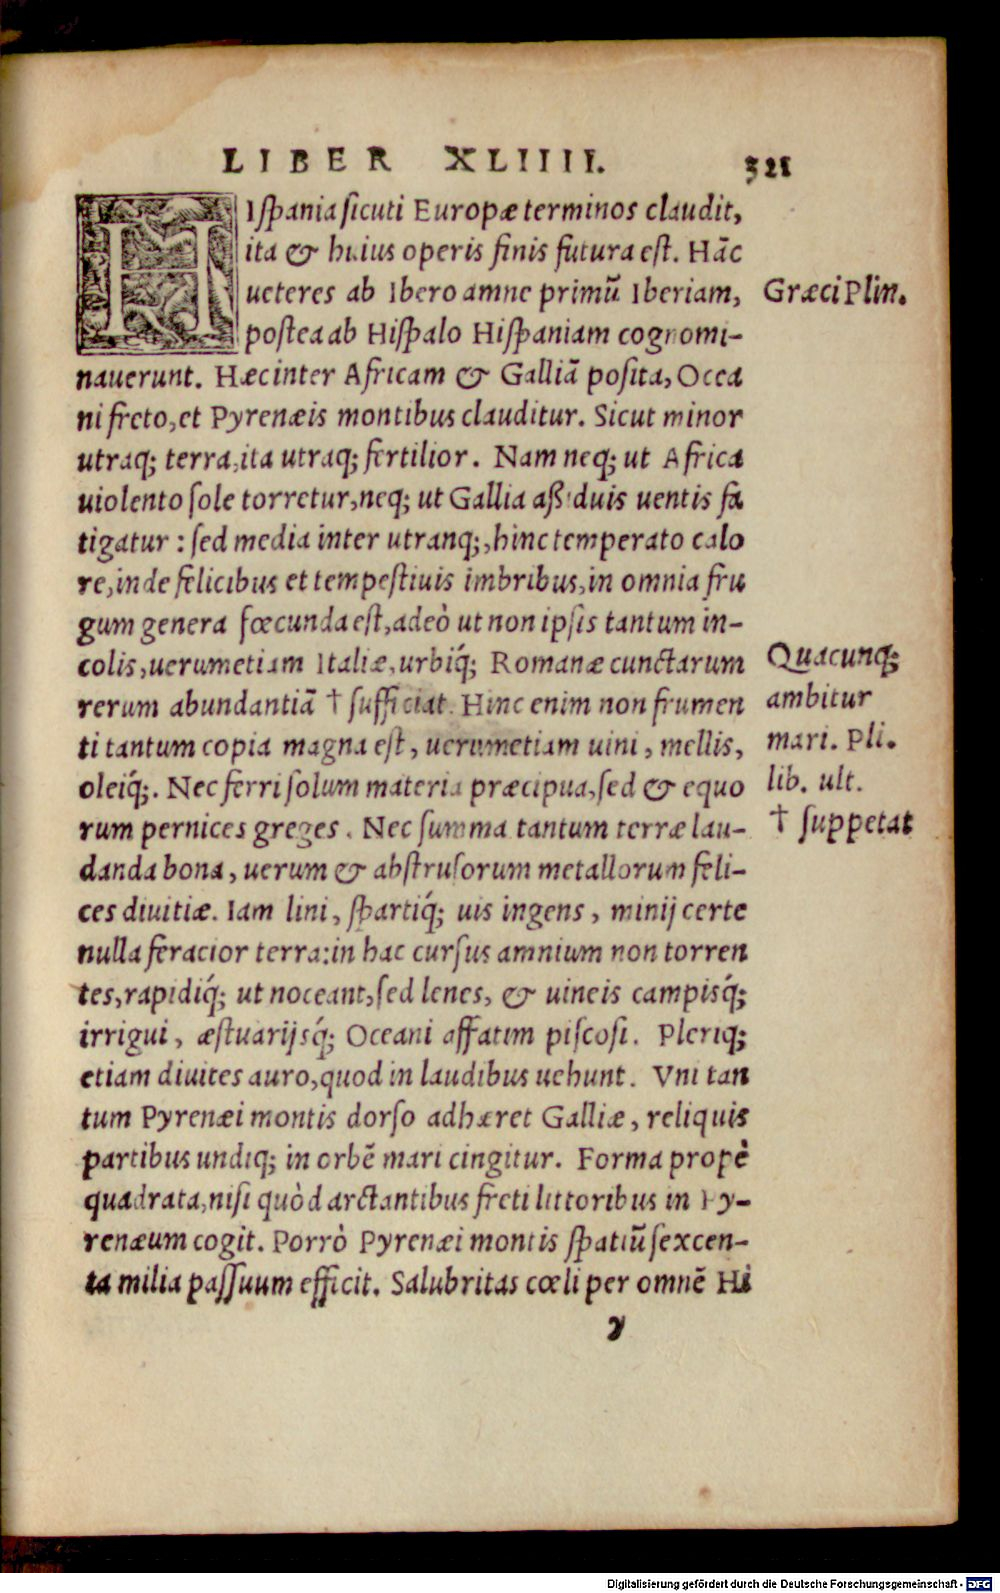 LIBER XLIIII. 321
HIſpania ſicuti Europæ terminos claudit,
ita & huius operis finis futura eſt. Hãc
ueteres ab Ibero amne primũ Iberiam,
Græci Plin.
poſtea ab Hiſpalo Hiſpaniam cognomi-
nauerunt. Hæc inter Africam & Galliã poſita, Ocea
ni freto, et Pyrenæis montibus clauditur. Sicut minor
utraq; terra, ita utraq; fertilior. Nam neq; ut Africa
uiolento ſole torretur, neq; ut Gallia aßiduis uentis fa
tigatur : ſed media inter utranq;, hinc temperato calo
re, inde felicibus et tempeſtiuis imbribus, in omnia fru
gum genera fœcunda eſt, adeò ut non ipſis tantum in-
colis, uerumetiam Italiæ, urbiq́; Romanæ cunctarum
Quacunq;
rerum abundantiã † ſufficiat. Hinc enim non frumen
ambitur
ti tantum copia magna eſt, uerumetiam uini, mellis,
mari. Pli.
oleiq́;. Nec ferri ſolum materia præcipua, ſed & equo
lib. ult.
rum pernices greges. Nec ſumma tantum terræ lau-
† ſuppetat
danda bona, uerum & abſtruſorum metallorum feli-
ces diuitiæ. Iam lini, ſpartiq́; uis ingens, minij certe
nulla feracior terra: in hac curſus amnium non torren
tes, rapidiq́; ut noceant, ſed lenes, & uineis campisq́;
irrigui, æſtuarijsq́; Oceani affatim piſcoſi. Pleriq;
etiam diuites auro, quod in laudibus uehunt. Vni tan
tum Pyrenæi montis dorſo adhæret Galliæ, reliquis
partibus undiq; in orbẽ mari cingitur. Forma propè
quadrata, niſi quòd arctantibus freti littoribus in Py-
renæum cogit. Porrò Pyrenæi montis ſpatiũ ſexcen-
ta milia paſſuum efficit. Salubritas cœli per omnẽ Hi
y
Digitalisierung gefördert durch die Deutsche Forschungsgemeinschaft - DFG